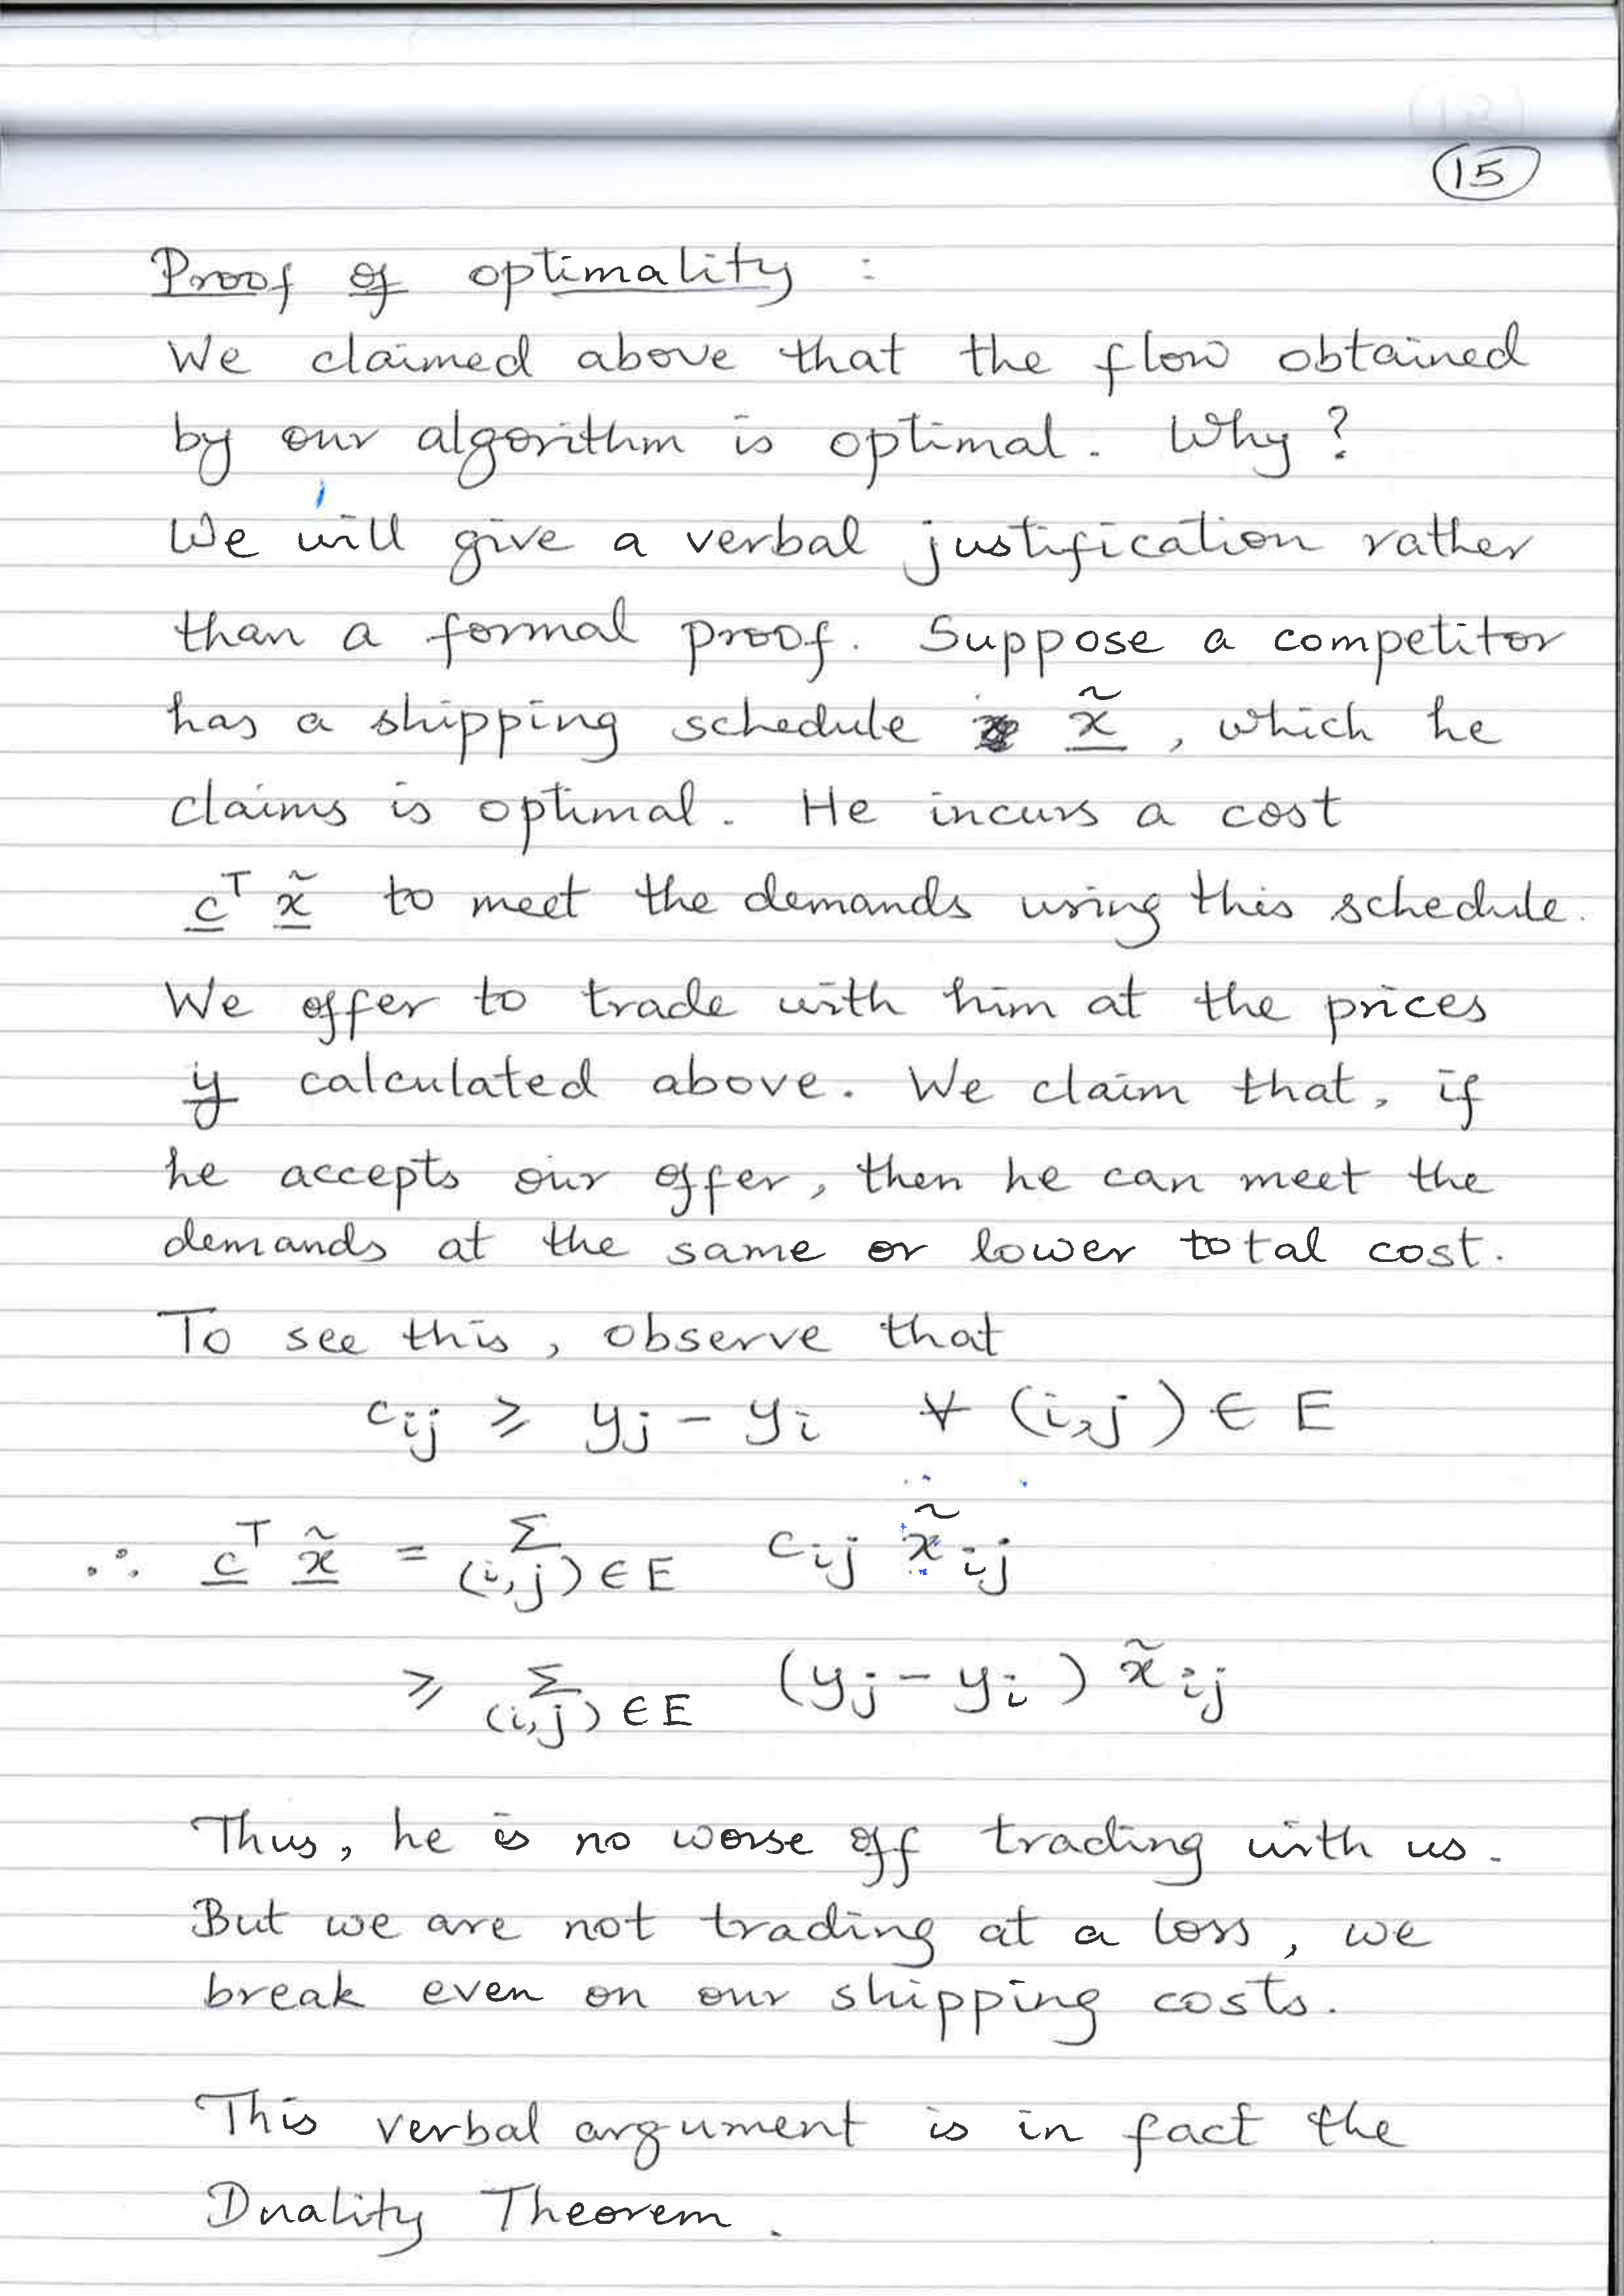 15
Proof of optimality :
We claimed above that the flow obtained
by our algorithm is optimal. Why?
We will give a verbal justification rather
than a formal proof. Suppose a competitor
has a shipping schedule x̃, which he
claims is optimal. He incurs a cost
c^T x̃ to meet the demands using this schedule.
We offer to trade with him at the prices
y calculated above. We claim that, if
he accepts our offer, then he can meet the
demands at the same or lower total cost.
To see this, observe that
c_ij ≥ y_j - y_i ∀ (i,j) ∈ E
∴ c^T x̃ = Σ_(i,j)∈E c_ij x̃_ij
≥ Σ_(i,j)∈E (y_j - y_i) x̃_ij
Thus, he is no worse off trading with us.
But we are not trading at a loss, we
break even on our shipping costs.
This verbal argument is in fact the
Duality Theorem.